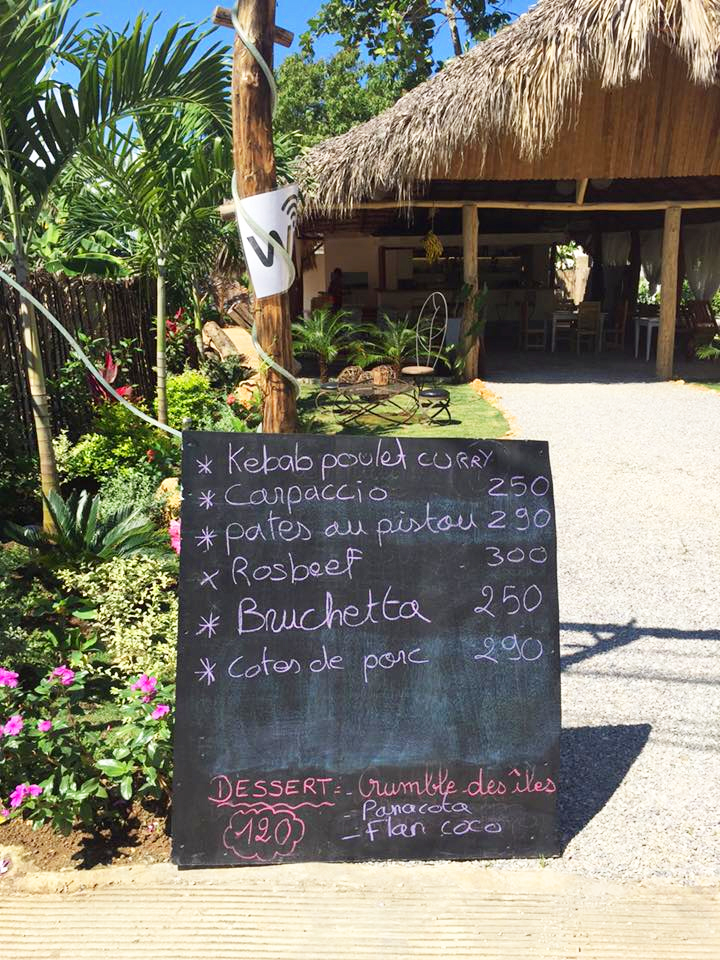 Wi
* Kebab poulet CURRY
* Carpaccio 250
* pates au pistou 290
x Rosbeef 300
* Bruchetta 250
* cotes de porc 290
DESSERT:- Crumble des îles
Panacota
120 - Flan coco